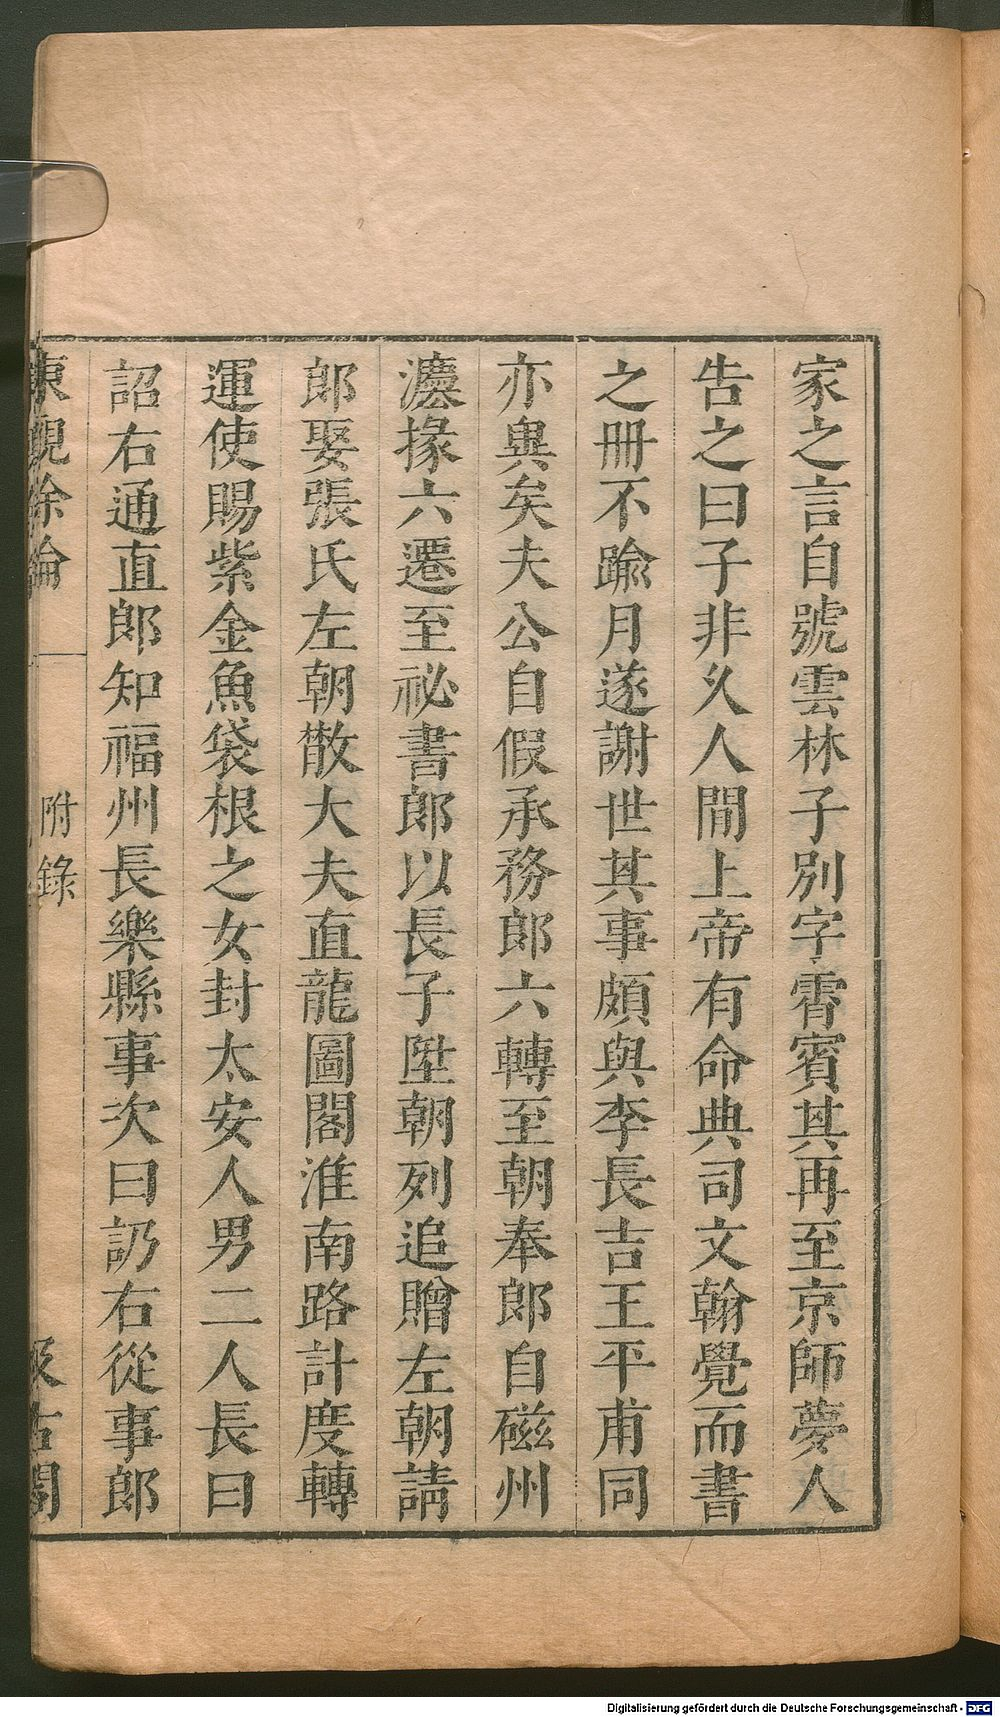 家之言自號雲林子別字霄賓其再至京師夢人
告之曰子非乆人間上帝有命典司文翰覺而書
之冊不踰月遂謝世其事頗與李長吉王平甫同
亦異矣夫公自假承務郎六轉至朝奉郎自磁州
灋掾六遷至祕書郎以長子陞朝列追贈左朝請
郎娶張氏左朝散大夫直龍圖閣淮南路計度轉
運使賜紫金魚袋根之女封太安人男二人長曰
詔右通直郎知福州長樂縣事次曰訒右從事郎
東觀余論 附錄 汲古閣
Digitalisierung gefördert durch die Deutsche Forschungsgemeinschaft - DFG